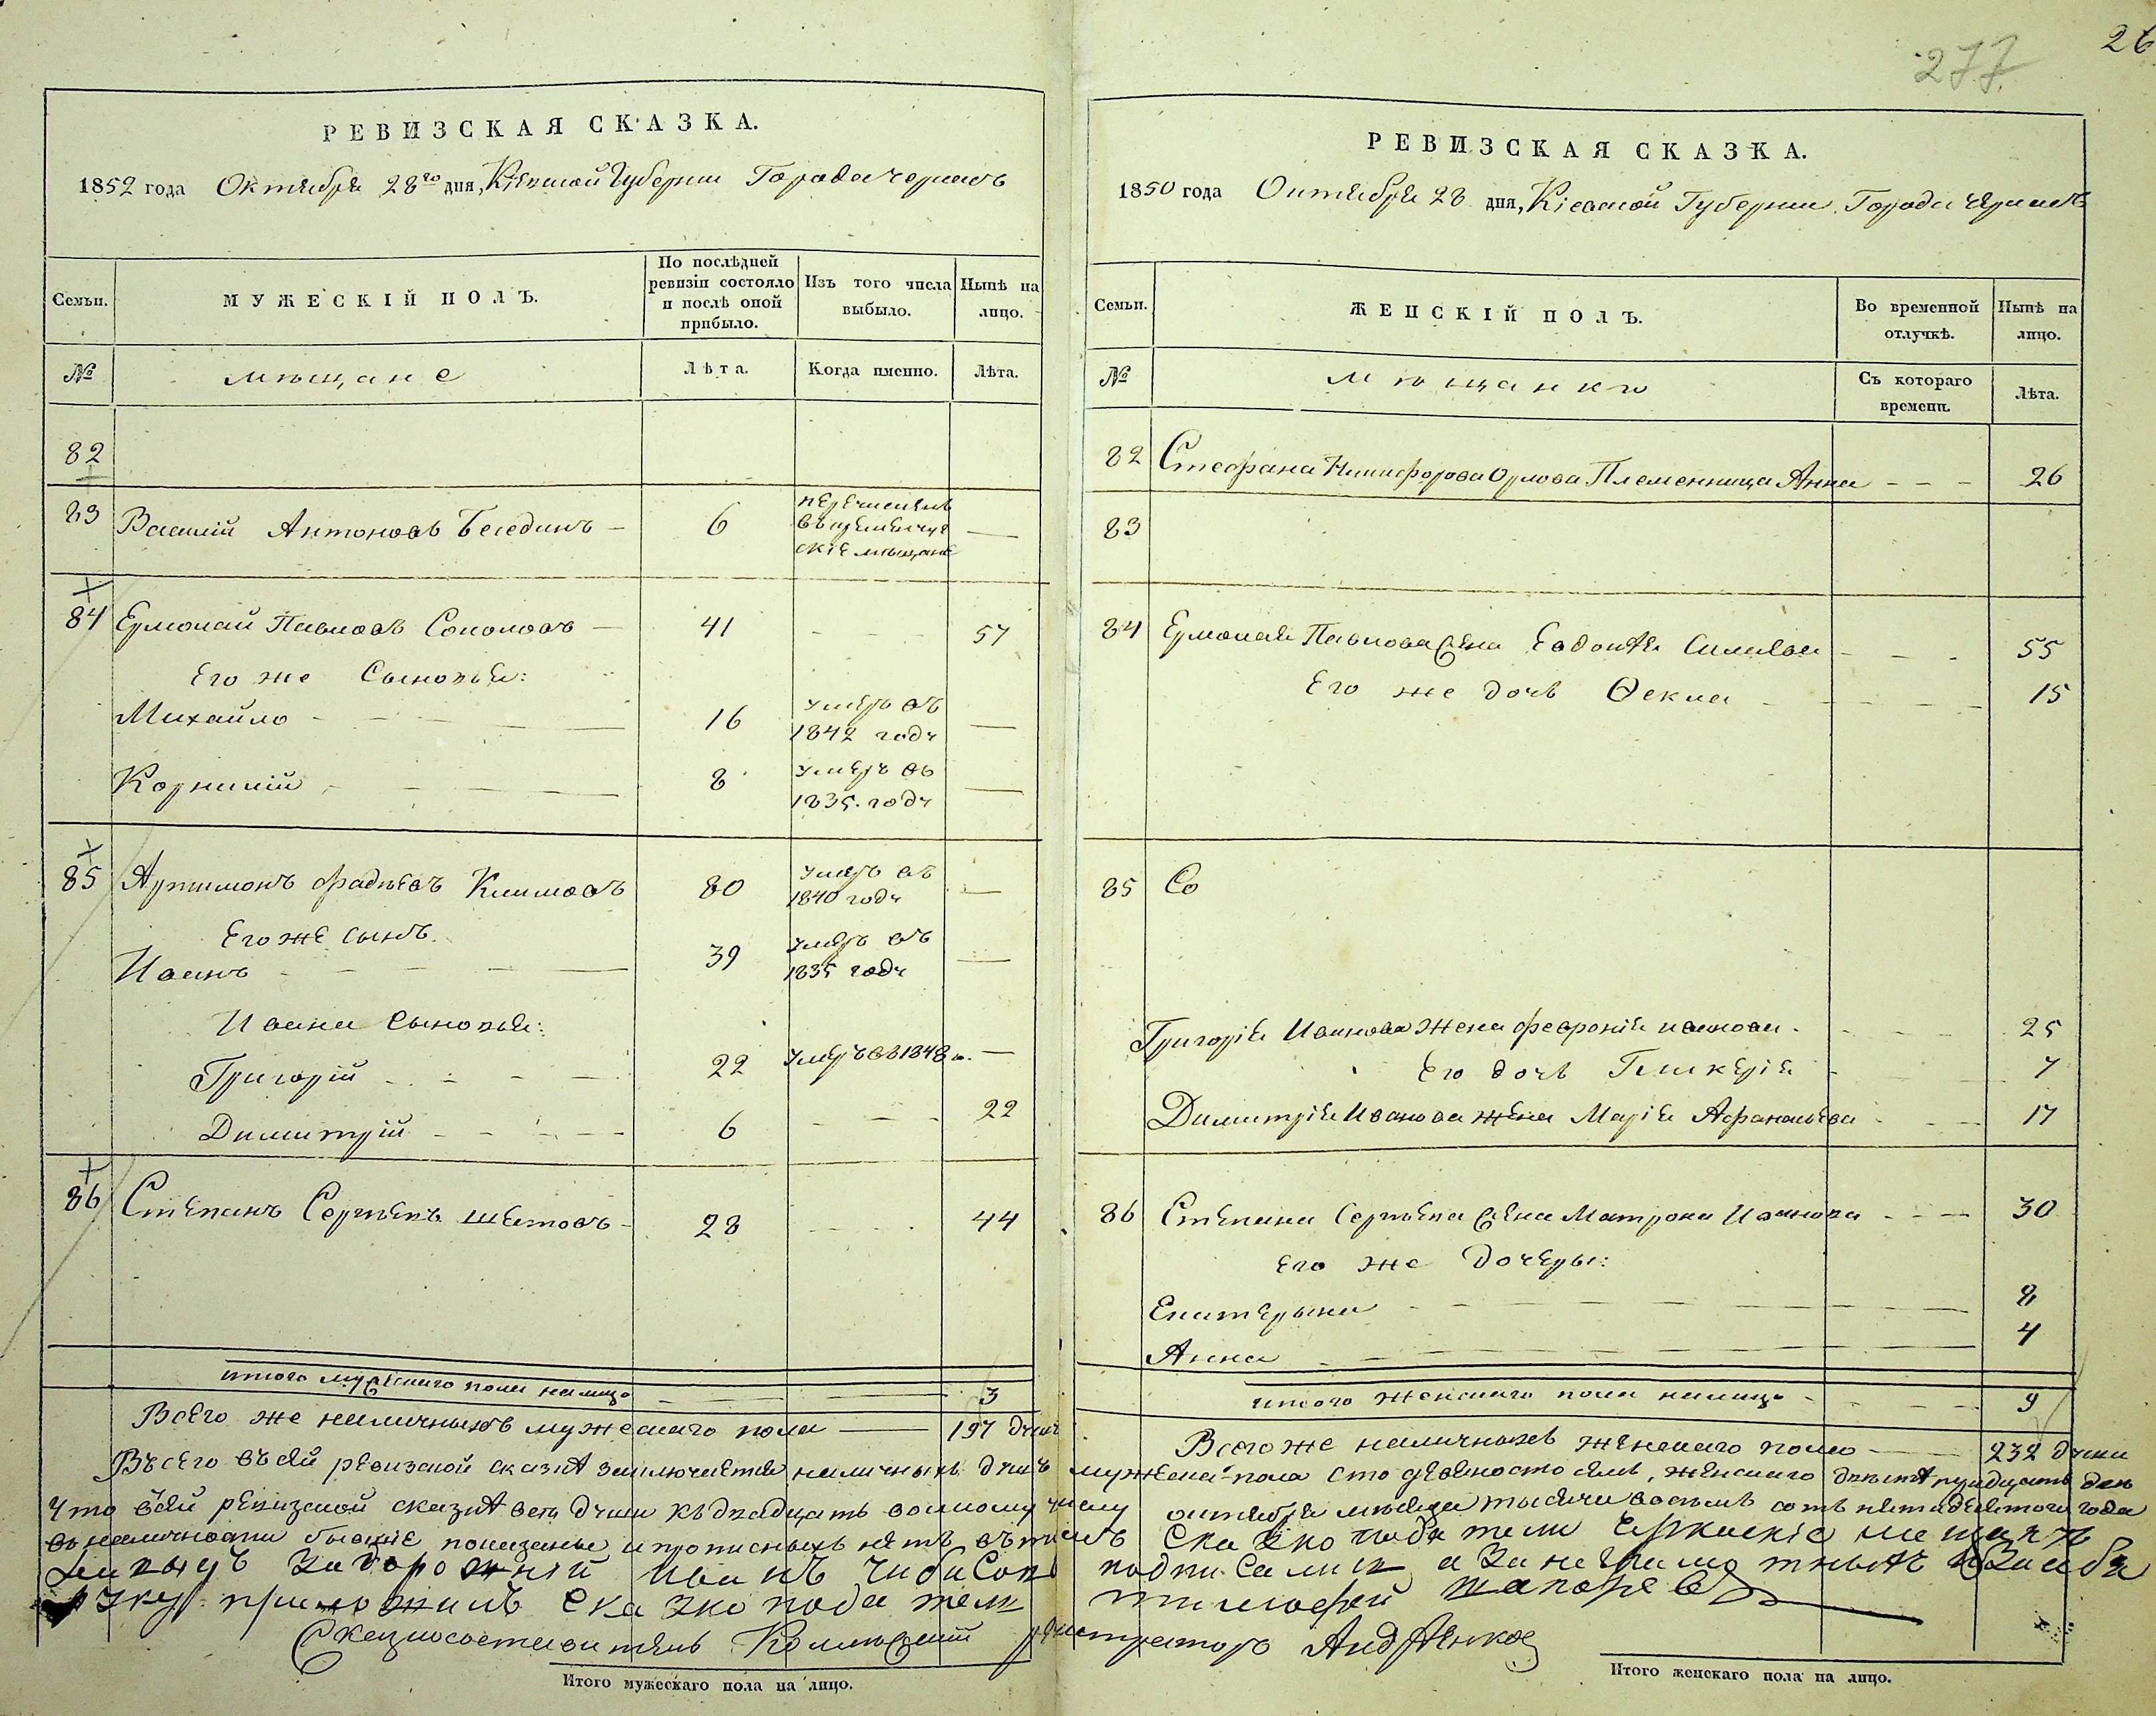 26
277.
РЕВИЗСКАЯ СКАЗКА.
1852 года Октября 28го дня, Кіевской Губерніи Города черкасъ
Семьи.
МУЖЕСКІЙ ПОЛЪ.
По послѣдней ревизіи состояло и послѣ оной прибыло.
Изъ того числа выбыло.
Нынѣ на лицо.
№
мѣщане
Лѣта.
Когда именно.
Лѣта.
82
83 Василій Антоновъ Беседин 6 перечисленъ
въ
скіе мѣщане
84 Ермолай Павловъ Соколовъ 41 57
Его же Сыновья:
Михайло 16 умеръ въ
1842 году
Корнилій 8 умеръ въ
1835. году
85 фадѣевъ Климовъ 80 умеръ въ
1840 году
Его же сынъ.
Иванъ 39 умеръ въ
1835 году
Ивана Сыновья:
Григорій 22 умеръ въ 1848 г.
Димитрій 6 22
86 Степанъ Сергѣевъ шестовъ 28 44
итого мужескаго пола налицо 3
Всего же наличныхъ мужескаго пола 197 душъ
РЕВИЗСКАЯ СКАЗКА.
1850 года Октября 28 дня, Кіевской Губерніи. Города черкасъ
Семьи.
ЖЕНСКІЙ ПОЛЪ.
Во временной отлучкѣ.
Нынѣ на лицо.
№
мѣщанки
Съ котораго времени.
Лѣта.
82 Стефана Никифорова Орлова Племенница Анна 26
83
84 Ермолая Павлова жена Евдокія 55
Его же дочь Ѳекла 15
85 Со
Григорія Иванова жена февронія иванова 25
Его дочь Гликерія 7
Димитрія Иванова жена Марія Афанасьева 17
86 Степана Сергѣева жена Матрона Иванова 30
Его же дочеры:
Екатерына 8
Анна 4
итого женскаго пола налицо 9
Всего же наличныхъ женскаго пола 232 души
Всего въ сей ревизской сказкѣ заключается наличныхъ душъ мужеска пола сто девяносто семь, женскаго двѣстѣ тридцать двѣ
Что въ сей ревизской сказкѣ всѣ души къ двадцать восмому числу октября мѣсяца тысяча восемь сотъ пятидесятого года
въ наличности бывшіе показаны и прописныхъ нѣтъ въ томъ Сказкоподатели Черкаскіе мещане
Задорожній Иванъ Чибисовъ подписались а за неграмотныхъ и за себя
руку приложилъ сказкоподатель тимофей
Сказкосоставитель Колежскій регистраторъ
Итого мужескаго пола на лицо.
Итого женскаго пола на лицо.